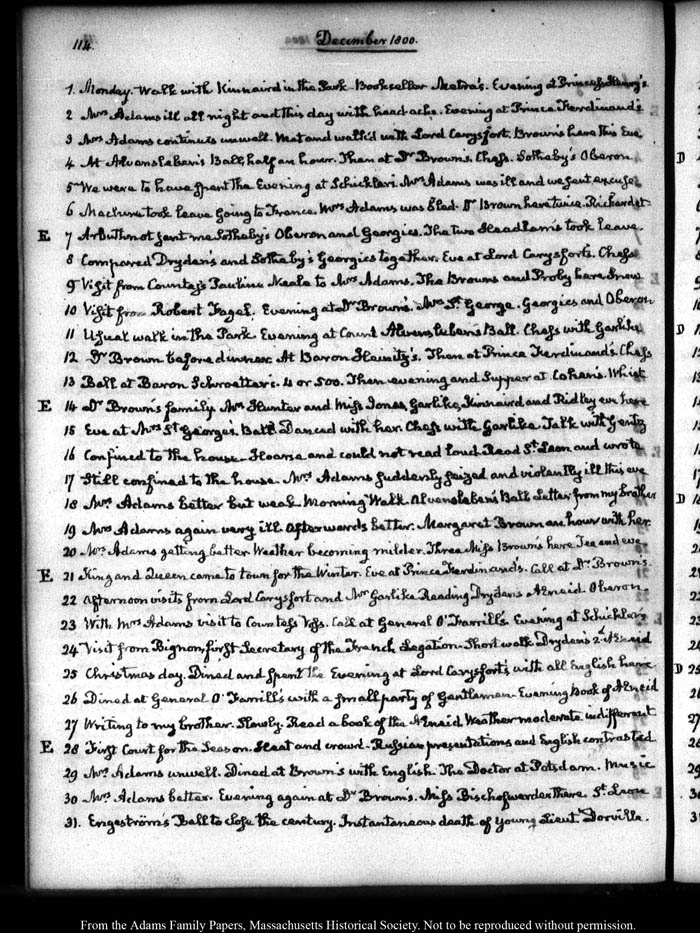 114.
December 1800.
1. Monday. Walk with Kinnaird in the Park. Bookseller Metra's. Evening at Princess Henry's
2 Mrs Adams ill all night and this day with head ache. Evening at Prince Ferdinand's
3 Mrs Adams continues unwell. Met and walk'd with Lord Carysfort. Brown's here this Eve
4 At Alvensleben's Ball half an hour. Then at Dr Browns. Chess. Sotheby's Oberon
5 We were to have spent the Evening at Schickler's. Mrs Adams was ill and we sent excuse
6 Maclure took leave going to France. Mrs Adams was bled. Dr Brown here twice. Richardet
E 7 Arbuthnot sent me Sotheby's Oberon and Georgics. The two Headlams took leave
8 Compared Dryden's and Sotheby's Georgics together. Eve at Lord Carysforts. Chess
9 Visit from Countess Pauline Neale to Mrs Adams. The Browns and Proby here Snow
10 Visit from Robert Fagel. Evening at Dr Brown's. Mrs St. George. Georgics and Oberon
11 Usual walk in the Park. Evening at Count Alvensleben's Ball. Chess with Garlike
12 Dr Brown before dinner. At Baron Heinitz's. Then at Prince Ferdinand's. Chess
13 Ball at Baron Schroetter's. 4 or 500. Then evening and Supper at Cohen's. Whist
E 14 Dr Brown's family. Mrs Hunter and Miss Jones, Garlike, Kinnaird and Ridley eve here
15 Eve at Mrs St George's Ball. Danced with her. Chess with Garlike Talk with Gentz
16 Confined to the house. Hoarse and could not read loud. Read St Leon and wrote
17 Still confined to the house. Mrs Adams suddenly seized and violently ill this eve
18 Mrs Adams better but weak. Morning Walk. Alvensleben's Ball Letter from my brother
19 Mrs Adams again very ill afterwards better. Margaret Brown an hour with her.
20 Mrs Adams getting better Weather becoming milder. Three Miss Brown's here. Tea and eve
E 21 King and Queen came to town for the Winter. Eve at Prince Ferdinands. Call at Dr Brown's.
22 Afternoon visits from Lord Carysfort and Mr Garlike. Reading Drydens Aeneid. Oberon
23 With Mrs Adams visit to Countess Voss. Call at General O'Farrill's. Evening at Schickler's
24 Visit from Bignon, first Secretary of the French Legation. Short walk Dryden's 2d Aeneid
25 Christmas day. Dined and spent the Evening at Lord Carysfort's with all English here
26 Dined at General O'Farrill's with a small party of Gentlemen. Evening book of Aeneid
27 Writing to my brother. Slowly. Read a book of the Aeneid. Weather moderate indifferent
E 28 First Court for the Season. Heat and crowd. Russian presentations and English contrasted
29 Mrs Adams unwell. Dined at Brown's with English. The Doctor at Potsdam. Music
30 Mrs Adams better. Evening again at Dr Brown's. Miss Bischofwerder there. St. Leon
31. Engeström's Ball to close the century. Instantaneous death of young Lieut. Dorville.
From the Adams Family Papers, Massachusetts Historical Society. Not to be reproduced without permission.